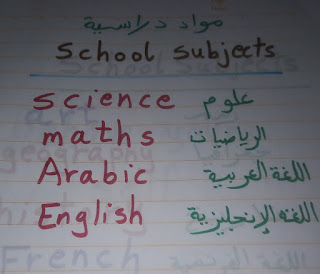 مواد دراسية
School subjects
science علوم
maths الرياضيات
Arabic اللغة العربية
English اللغة الإنجليزية